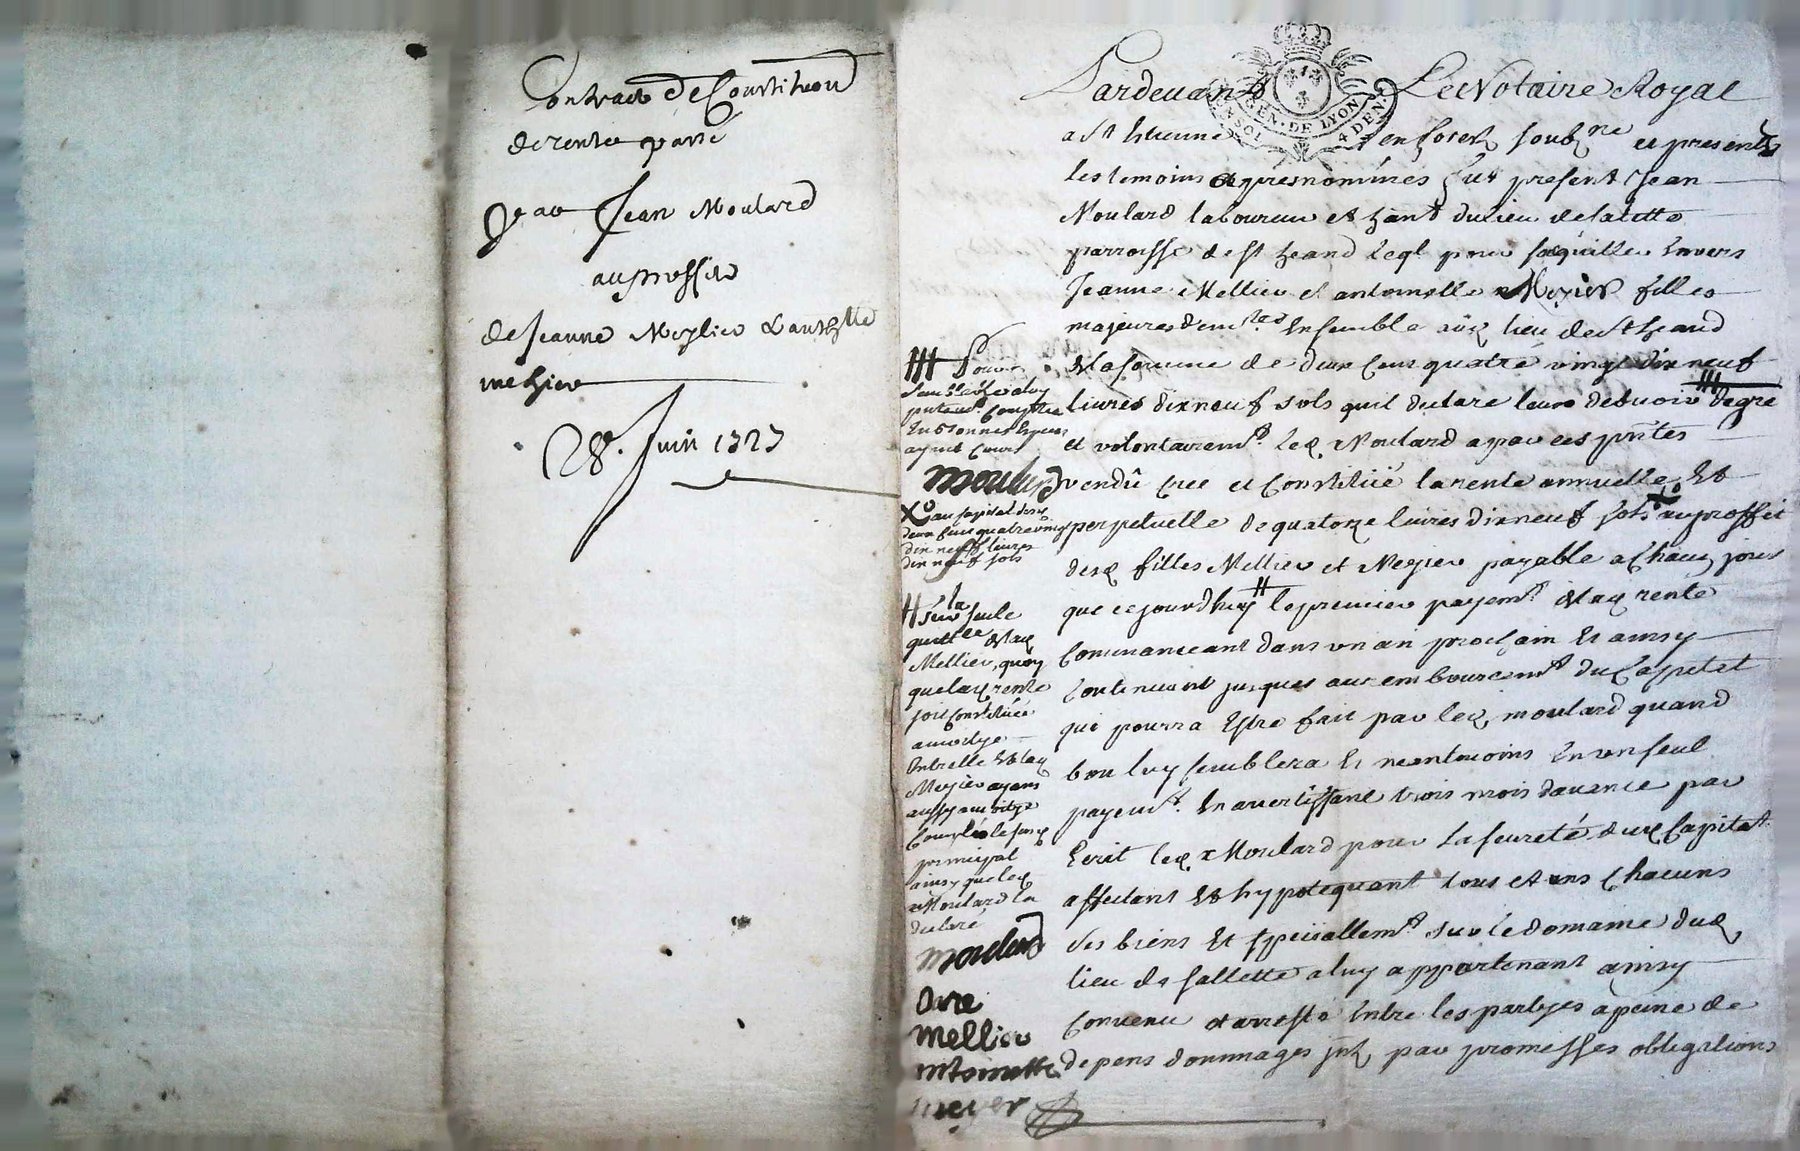 Contract de Constitution
de rente passé
par Jean Moulard
au proffit
de Jeanne Mellier & anth.tte
meyier
28. Juin 1727
GEN. DE LYON
4 DEN.
Pardevant Le Notaire Royal
a St Etienne en forest soubz.ne et presents
les temoins apresnommés fut present Jean
Moulard laboureur et hant du lieu de salette
parroisse de st heand leql pour saquiller envers
Jeanne Mellier et antoinette Meyier filles
majeures dem.tes Ensemble aud lieu de St heand
de la somme de deux cens quatre vingt dix neuf
livres dix neuf sols quil declare leur debvoir de gre
et volontairem.t led. Moulard a par ces pntes
vendû cree et Constitüé la rente annuelle Et
perpetuelle de quatorze livres dix neuf sols au proffit
desd filles Mellier et Meyier payable a Chacun jour
que cejourdhuy le premier payem.t de lad rente
Commanceant dans un an prochain Et ainsy
Continuant jusques au rembourcem.t du Capital
qui pourra Estre fait par led. moulard quand
bon luy semblera Et neantmoins En un seul
payem.t En avertissant trois mois davance par
Ecrit led Moulard pour la seureté dud Capital
affectant Et hypotequant tous et uns Chacuns
ses biens Et specialem.t sur le domaine dud.
lieu de sallette a luy appartenant ainsy
Convenu et arresté Entre les partyes a peine de
depens dommages jnt. par promesses obligations
Pour
ayant Cours
moulard
au Capital desd
deux cens quatre vingt
dix neuf livres
dix neuf sols
sur la seule
quitt.ce de lad
Mellier, quoy
que lad rente
soit Constituée
au
Entrelle Et lad
Meyier ayant
aussy
Compté lesusd
principal
ainsy que led
Moulard la
declaré
moulard
Mellier
antoinette
meyer